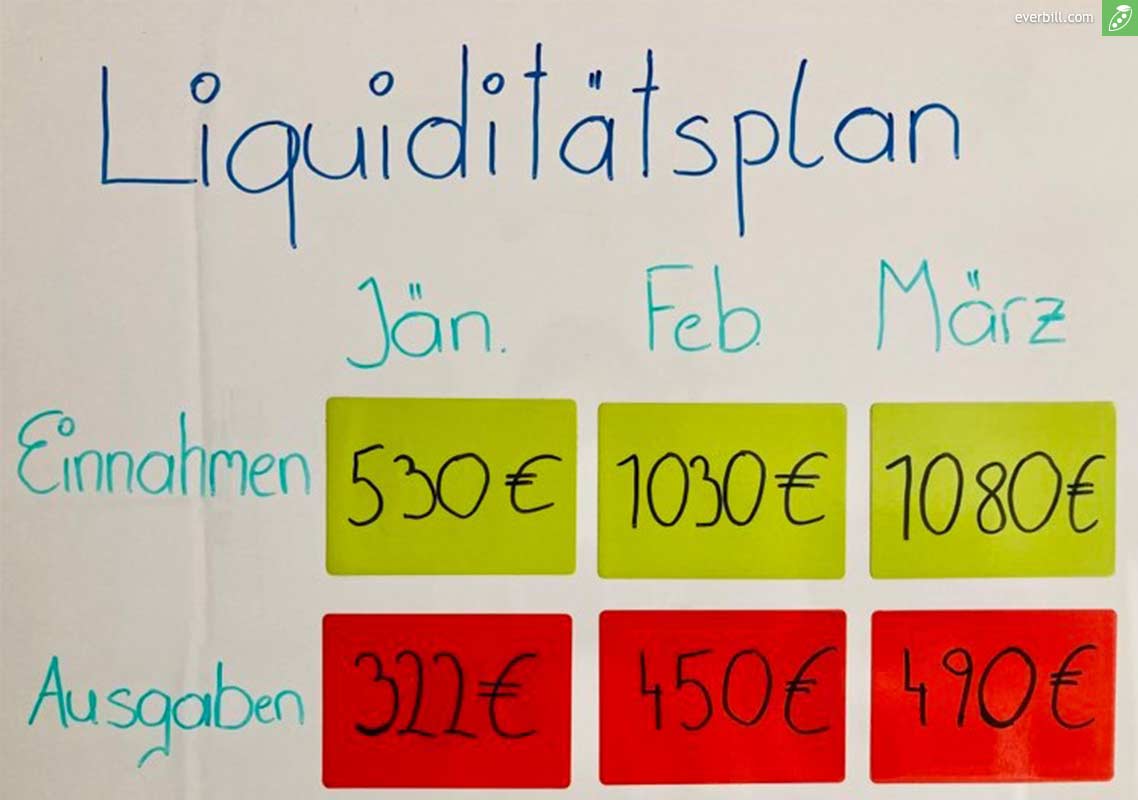 everbill.com
Liquiditätsplan
Jän. Feb. März
Einnahmen 530€ 1030€ 1080€
Ausgaben 322€ 450€ 490€